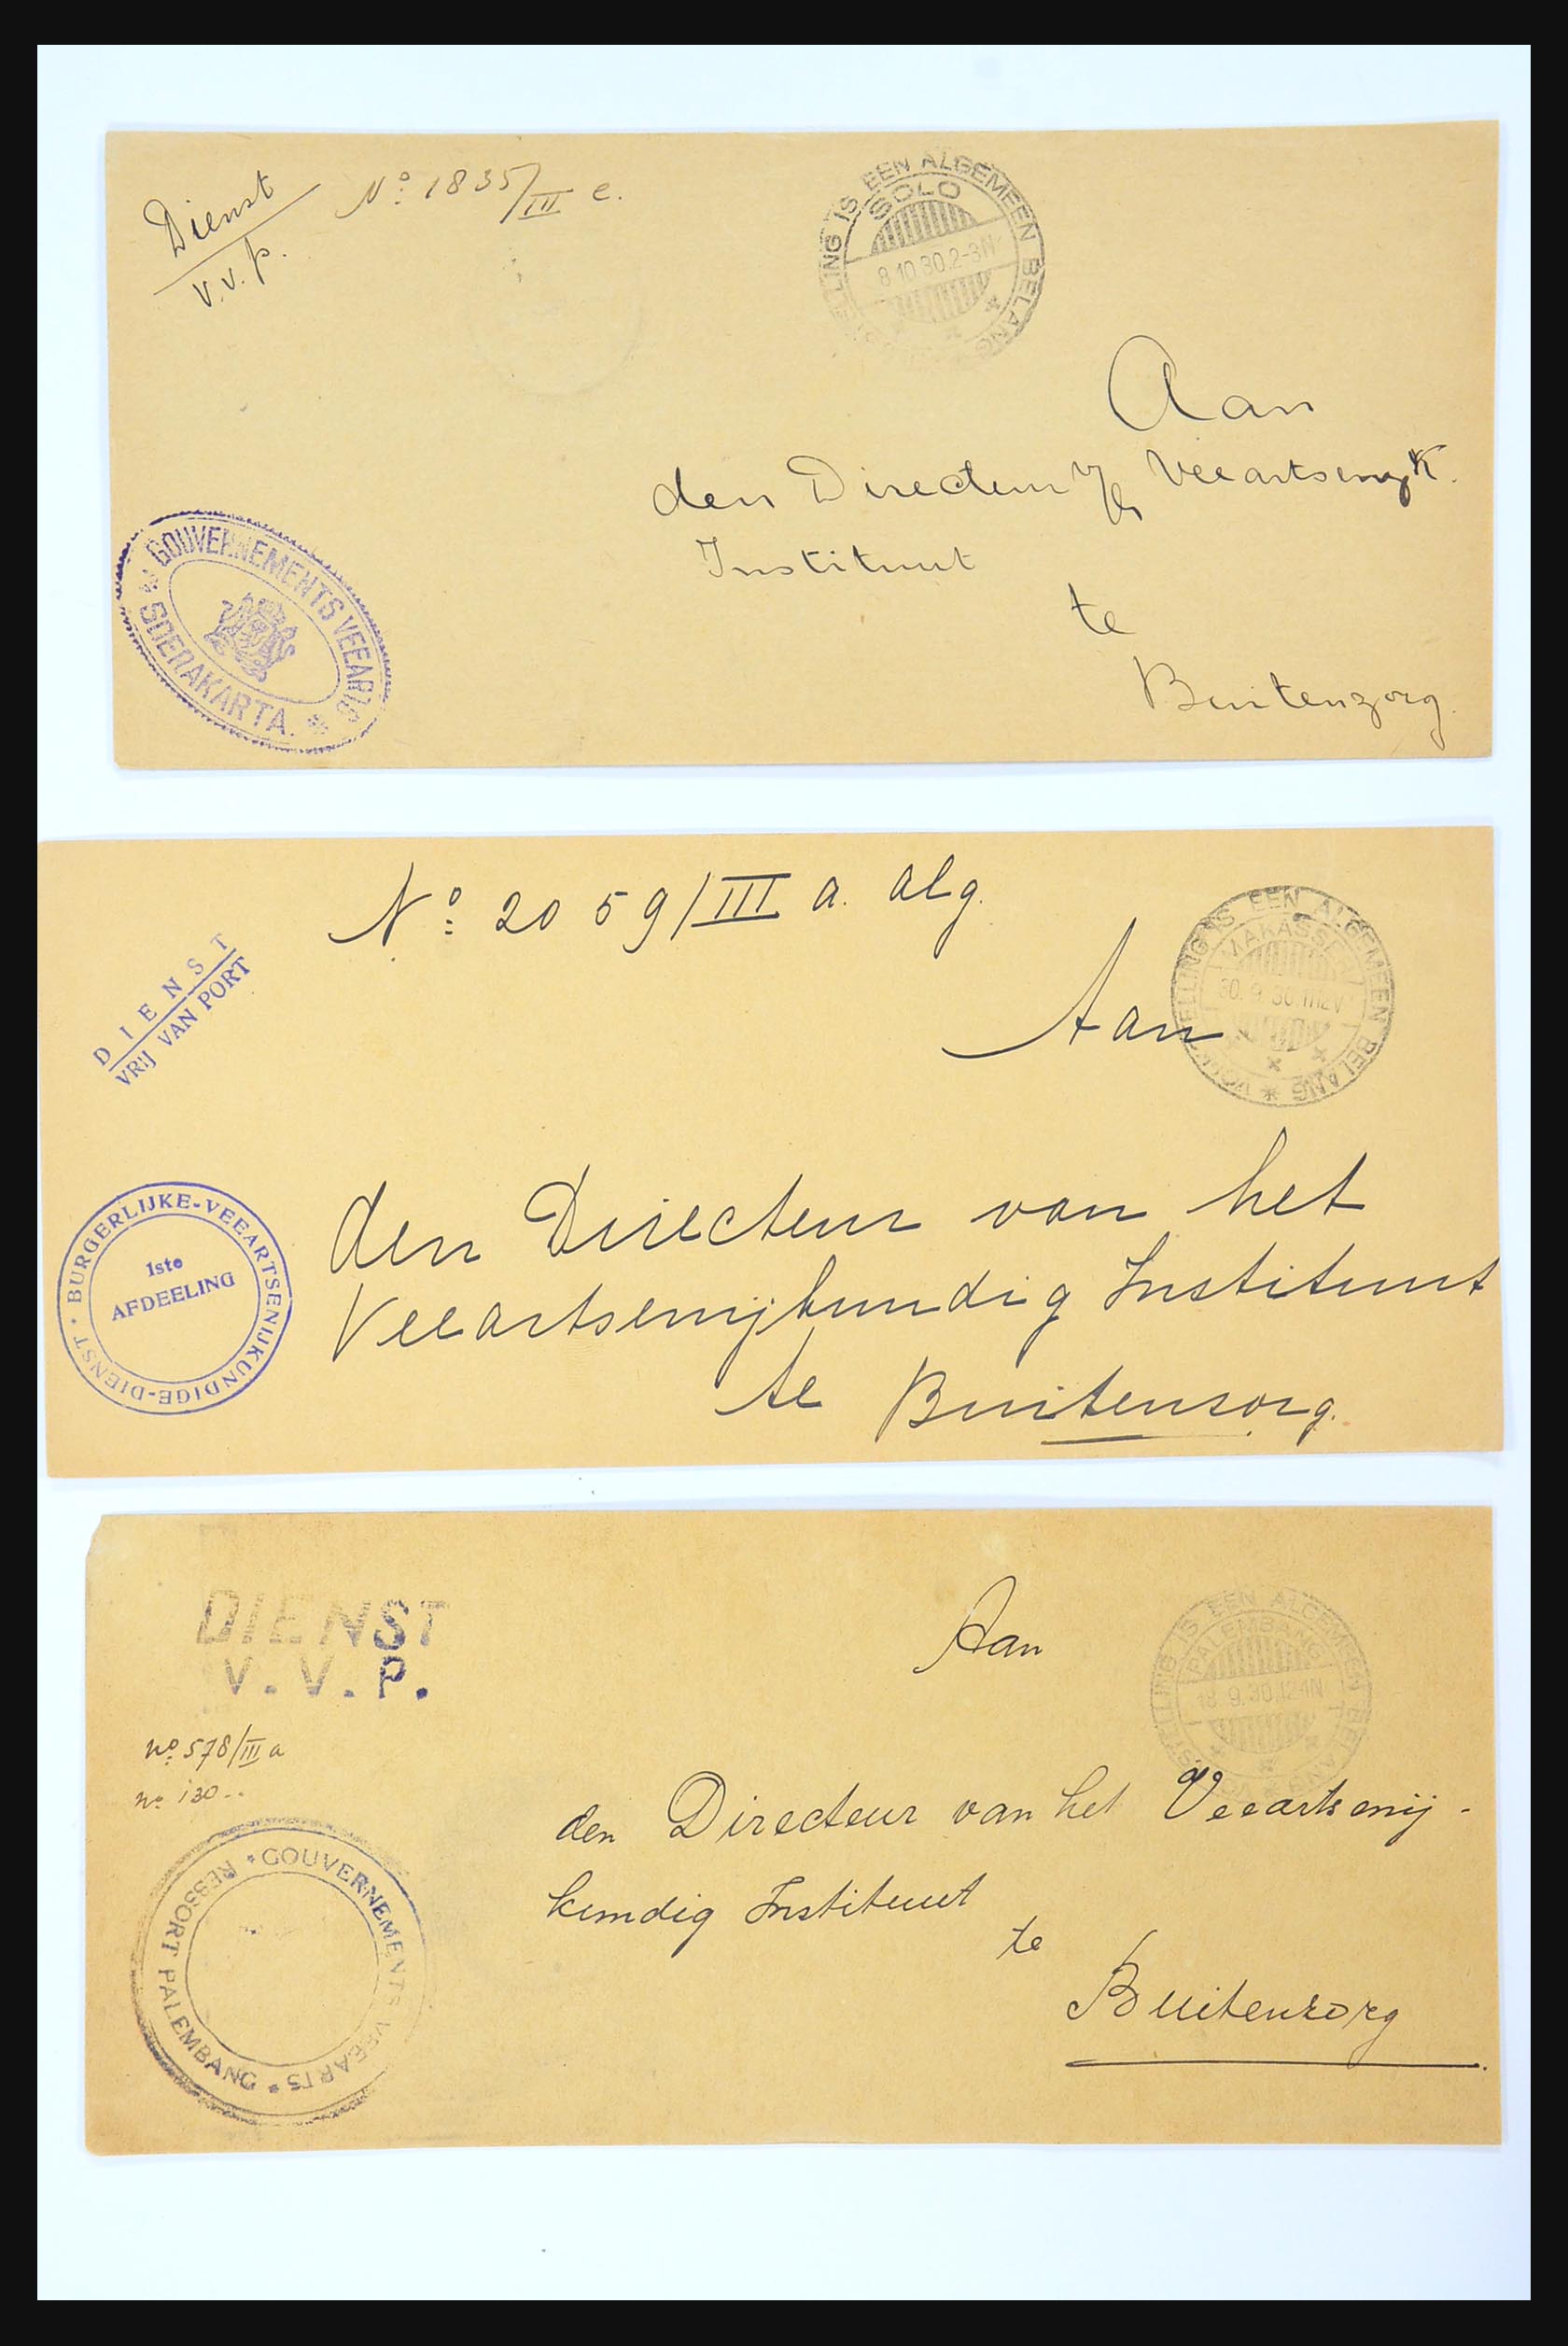 Dienst
v.v.p.
No: 1835/III e.
VOLKSTELLING IS EEN ALGEMEEN BELANG
SOLO
8.10.30.2-3N
Aan
den Directeur v/h Veeartsenijk.
Instituut
te
Buitenzorg.
GOUVERNEMENTS VEEARTS
SOERAKARTA.
No: 2059/III a. alg.
DIENST
VRIJ VAN PORT
VOLKSTELLING IS EEN ALGEMEEN BELANG
MAKASSER
30. 9. 30.11-12V
Aan
den Directeur van het
Veeartsenijkundig Instituut
te Buitensorg.
BURGERLIJKE-VEEARTSENIJKUNDIGE-DIENST
1ste
AFDEELING
DIENST
V.V.P.
no: 578/III a
no: 130..
VOLKSTELLING IS EEN ALGEMEEN BELANG
PALEMBANG
18. 9.30.12-1N
Aan
den Directeur van het Veeartsenij-
kundig Instituut
te
Buitenzorg
GOUVERNEMENTS VEEARTS
RESSORT PALEMBANG